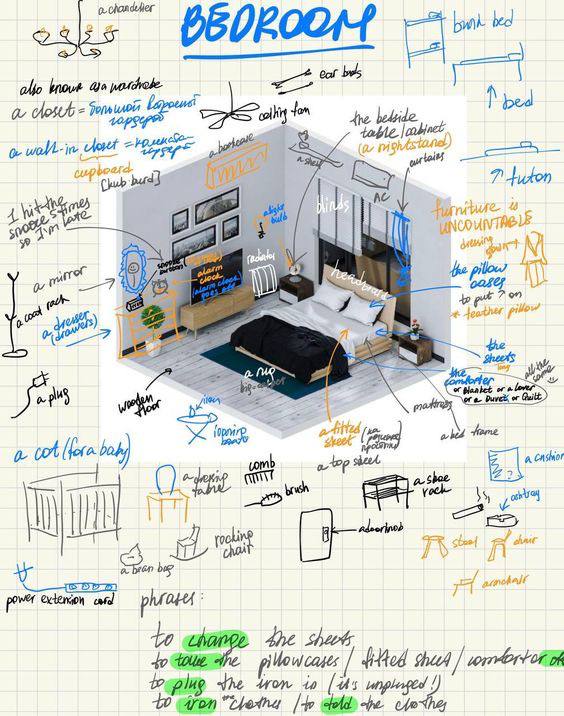 a chandelier
BEDROOM
bunk bed
bed
futon
also known as a wardrobe
a closet = большой встроенный
гардероб
a walk-in closet = комната-
гардероб
cupboard
[kub:burd]
ear buds
ceiling fan
a bookcase
a shelf
the bedside
table/cabinet
(a nightstand)
AC
curtains
blinds
furniture is
UNCOUNTABLE
dressing
gown
I hit the
snooze 5 times
so I'm late
a mirror
a coat rack
a dresser
(drawers)
a plug
snooze
button
alarm
clock
(alarm clock
goes off)
a light
bulb
radiator
headboard
the pillow
cases
to put ? on
* feather pillow
the
sheets
the
comforter
or Blanket or a Cover
or a Duvet or Quilt
all the
same
a rug
wooden
floor
iron
ironing
board
a fitted
sheet
a top sheet
mattress
a bed frame
a cot (for a baby)
a dressing
table
comb
brush
a shoe
rack
a cushion
ashtray
a doorknob
stool
chair
armchair
a bean bag
rocking
chair
power extension cord
phrases:
to change the sheets
to take the pillowcases / fitted sheet / comforter off
to plug the iron in (it's unplugged!)
to iron the clothes / to fold the clothes